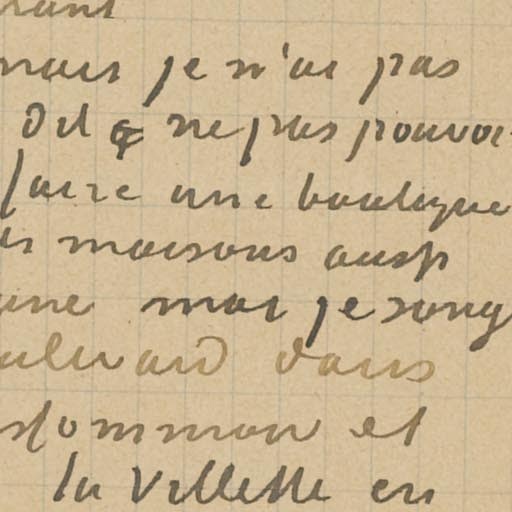 mais je n'ai pas
dit q ne pas pouvoi
faire une boutique
es maisons aussi
une moi je song
oulevard dans
stomman et
la Villette en